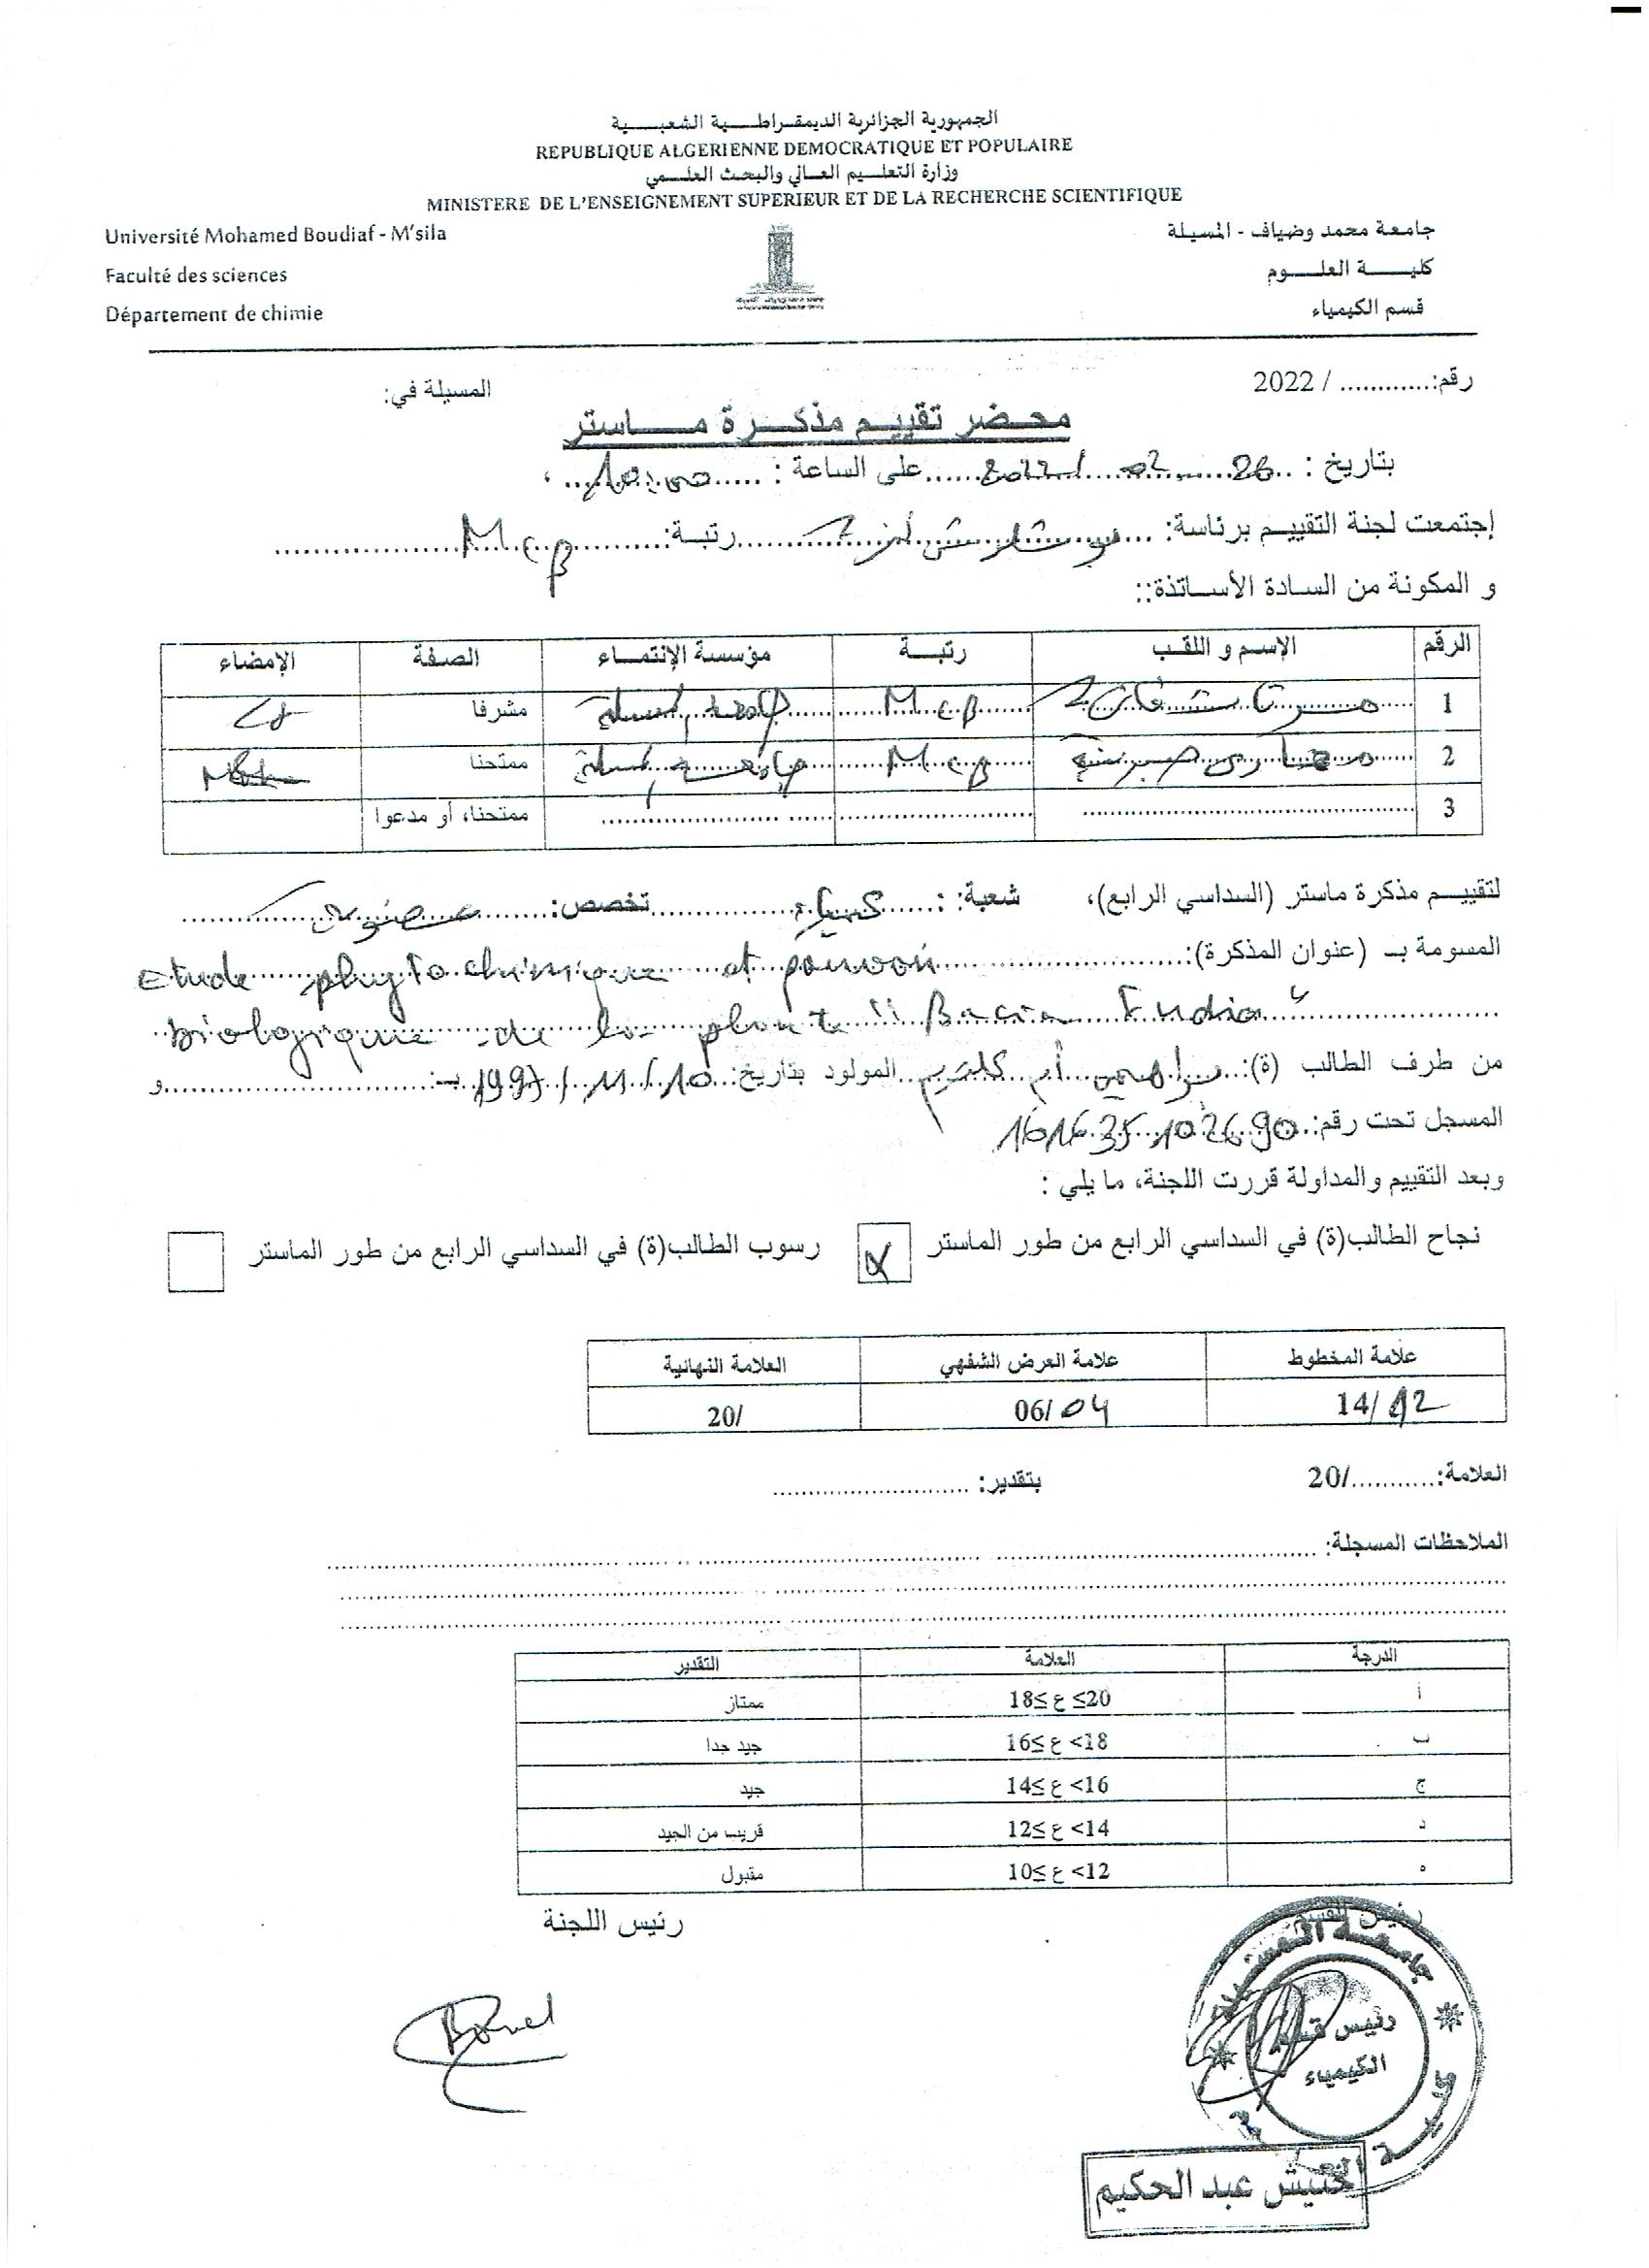 الجمهورية الجزائرية الديمقراطية الشعبية
REPUBLIQUE ALGERIENNE DEMOCRATIQUE ET POPULAIRE
وزارة التعليم العالي والبحث العلمي
MINISTERE DE L'ENSEIGNEMENT SUPERIEUR ET DE LA RECHERCHE SCIENTIFIQUE
Université Mohamed Boudiaf - M'sila
جامعة محمد وضياف - المسيلة
Faculté des sciences
كلية العلوم
Département de chimie
قسم الكيمياء
رقم:............ / 2022
المسيلة في:
محضر تقييم مذكرة ماستر
بتاريخ : 26 02 2022 على الساعة : 10
إجتمعت لجنة التقييم برئاسة: رتبة: McB
و المكونة من السادة الأساتذة::
الرقم الإسم و اللقب رتبة مؤسسة الإنتماء الصفة الإمضاء
1 McB جامعة المسيلة مشرفا
2 McB جامعة المسيلة ممتحنا
3 ممتحنا، أو مدعوا
لتقييم مذكرة ماستر (السداسي الرابع)، شعبة: : كيمياء تخصص: عضوية
المسومة بـ (عنوان المذكرة):
Etude phytochimique et pouvoir
biologique de la plante "
من طرف الطالب (ة): أم كلثوم المولود بتاريخ: 10/11/1997 بـ: و
المسجل تحت رقم: 161635102690
وبعد التقييم والمداولة قررت اللجنة، ما يلي :
نجاح الطالب(ة) في السداسي الرابع من طور الماستر
رسوب الطالب(ة) في السداسي الرابع من طور الماستر
علامة المخطوط علامة العرض الشفهي العلامة النهائية
14/12 06/04 20/
العلامة:.........../20 بتقدير: ...........................
الملاحظات المسجلة:
الدرجة العلامة التقدير
أ 20≥ ع ≥18 ممتاز
ب 18> ع ≥16 جيد جدا
ج 16> ع ≥14 جيد
د 14> ع ≥12 قريب من الجيد
ه 12> ع ≥10 مقبول
رئيس القسم
رئيس اللجنة
رئيس قسم
الكيمياء
خنيش عبد الحكيم